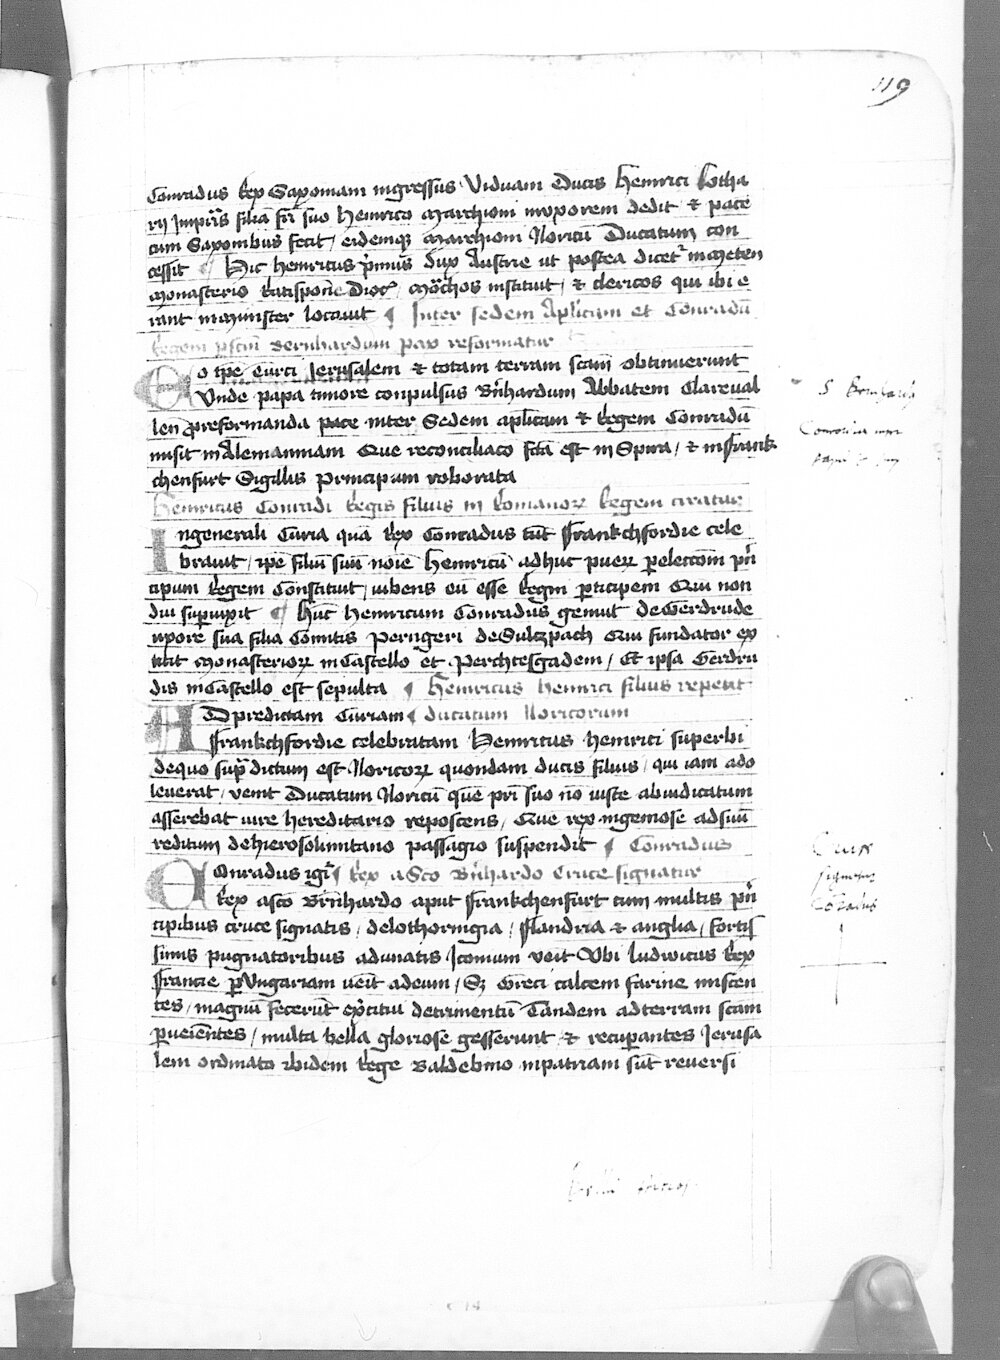 119
Conradus Rex Saxoniam ingressus Viduam Ducis Heinrici Lotha
rij Impr̄is filia fr̄i suo Heinrico Marchioni in vxorem dedit et pacē
cum Saxonibus fecit / eidemq; Marchioni Noricū Ducatum con
cessit ¶ Hic heinricus p̄mus dux Austrie ut postea dicet̄ in Meten
Monasterio Ratispoñe Dioc̄ / Mōchos instituit / et clericos qui ibi e
rant in Minister locauit ¶ Inter sedem Ap̄licam et Conradū
Regem p sc̄m Bernhardum pax reformatur
Eo tp̄e Turci Jerusalem et totam terram sc̄am obtinuerunt
Vnde papa timore conpulsus Bn̄hardum Abbatem Clareual
len̄ p reformanda pace inter Sedem ap̄licam et Regem Conradū
misit in Alemanniam Que reconciliaco fc̄a est in Spira / et in Franck
chenfurt Sigillis principum roborata
Heinricus Conradi Regis filius in Romanorꝝ Regem creatur
In generali Curia quā Rex Conradus tūc Franckchfordie cele
brauit / ip̄e filiū suū noīe Heinricū adhuc puerꝝ p eleccōem pn̄
cipum Regem Constituit / iubens eū esse Regni p̄ticipem Qui non
diu sup̄uixit ¶ Hūc Heinricum Conradus genuit de Gerdrude
vxore sua filia Comitis Perngeri de Sultzpach Qui fundator ex
titit Monasteriorꝝ in Castello et Perchtesgadem / Et ipsa Gerdru
dis in Castello est sepulta ¶ Heinricus heinrici filius repetit
AD predictam Curiam ¶ ducatum Noricorum
Franckchfordie celebratam Heinricus heinrici superbi
de quo sup̄dictum est Noricorꝝ quondam ducis filius / qui iam ado
leuerat / venit Ducatum Noricū quē pr̄i suo nō iuste abiudicatum
asserebat iure hereditario reposcens / Que rex ingeniose ad suū
reditum de hierosolimitano passagio suspendit ¶ Conradus
COnradus igr̄ ¶ Rex a Sc̄o Bn̄hardo Cruce signatur
Rex a sc̄o Bn̄hardo aput Franckchenfurt cum multis pn̄
cipibus cruce signatis / de lothoringia / Flandria et anglia / fortis
simis pugnatoribus adunatis Iconium veīt Vbi ludwicus Rex
Francie p Vngariam veīt ad eum / Sꝫ Greci calcem farine miscen
tes / magnū fecerūt ex̄citui detrimentū Tandem ad terram sc̄am
p̄ueīentes / multa bella gloriose gesserunt et recup̄antes Jerusa
lem ordinato ibidem Rege Baldebino in patriam sūt reuersi
Crux
signatus